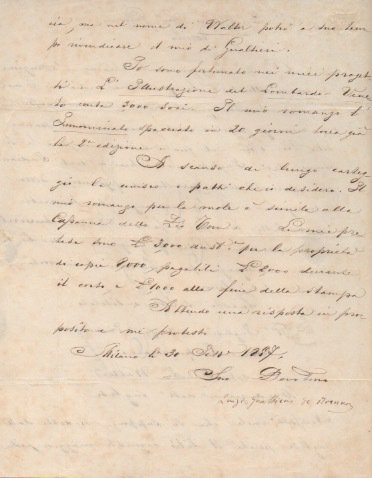 cia, ma nel nome di Walter potrò a suo tem
po rivendicare il mio di Gualtieri.
Io sono fortunato nei miei proget
ti. L'Illustrazione del Lombardo Vene
to conta 3000 soci. Il mio romanzo l'
Innominato spacciato in 20 giorni
la 2ª edizione.
A scanso di lungo carteg
gio le avviso i patti che io desidero. Il
mio romanzo per la mole è simile alla
Capanna dello Zio Tom. Le mie pre
tese sono £ 3,000 aust.e per la proprietà
di copie 8,000 pagabili £ 2000 durante
il corso e £ 1000 alla fine della stampa
Attendo una risposta in pro
posito e mi protesto
Milano li 30 1857.
Suo
Luigi Gualtieri di